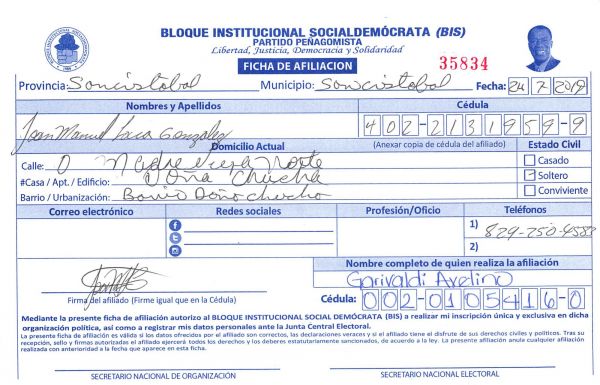 BLOQUE INSTITUCIONAL SOCIALDEMÓCRATA (BIS)
PARTIDO PEÑAGOMISTA
Libertad, Justicia, Democracia y Solidaridad
FICHA DE AFILIACION
35834
Provincia: Sancristobal Municipio: Sancristobal Fecha: 24/7/2019
Nombres y Apellidos Cédula
Joan Manuel Gonzalez 402-2131959-9
Domicilio Actual (Anexar copia de cédula del afiliado) Estado Civil
Calle: Madre vieja norte Casado
#Casa / Apt. / Edificio: Doña Chucha Soltero
Barrio / Urbanización: Barrio Doña chucha Conviviente
Correo electrónico Redes sociales Profesión/Oficio Teléfonos
1) 829-250-4583
2)
Nombre completo de quien realiza la afiliación
Garivaldi Avelino
Firma del afiliado (Firme igual que en la Cédula) Cédula: 002-0105416-0
Mediante la presente ficha de afiliación autorizo al BLOQUE INSTITUCIONAL SOCIAL DEMÓCRATA (BIS) a realizar mi inscripción única y exclusiva en dicha
organización política, así como a registrar mis datos personales ante la Junta Central Electoral.
La presente ficha de afiliación es válida si los datos ofrecidos por el afiliado son correctos, las declaraciones veraces y si el afiliado tiene el disfrute de sus derechos civiles y políticos. Tras su
recepción, sello y firmas autorizadas el afiliado ejercerá todos los derechos y los deberes estatutariamente sancionados, de acuerdo a la ley. La presente afiliación anula cualquier afiliación
realizada con anterioridad a la fecha que aparece en esta ficha.
SECRETARIO NACIONAL DE ORGANIZACIÓN SECRETARIO NACIONAL ELECTORAL